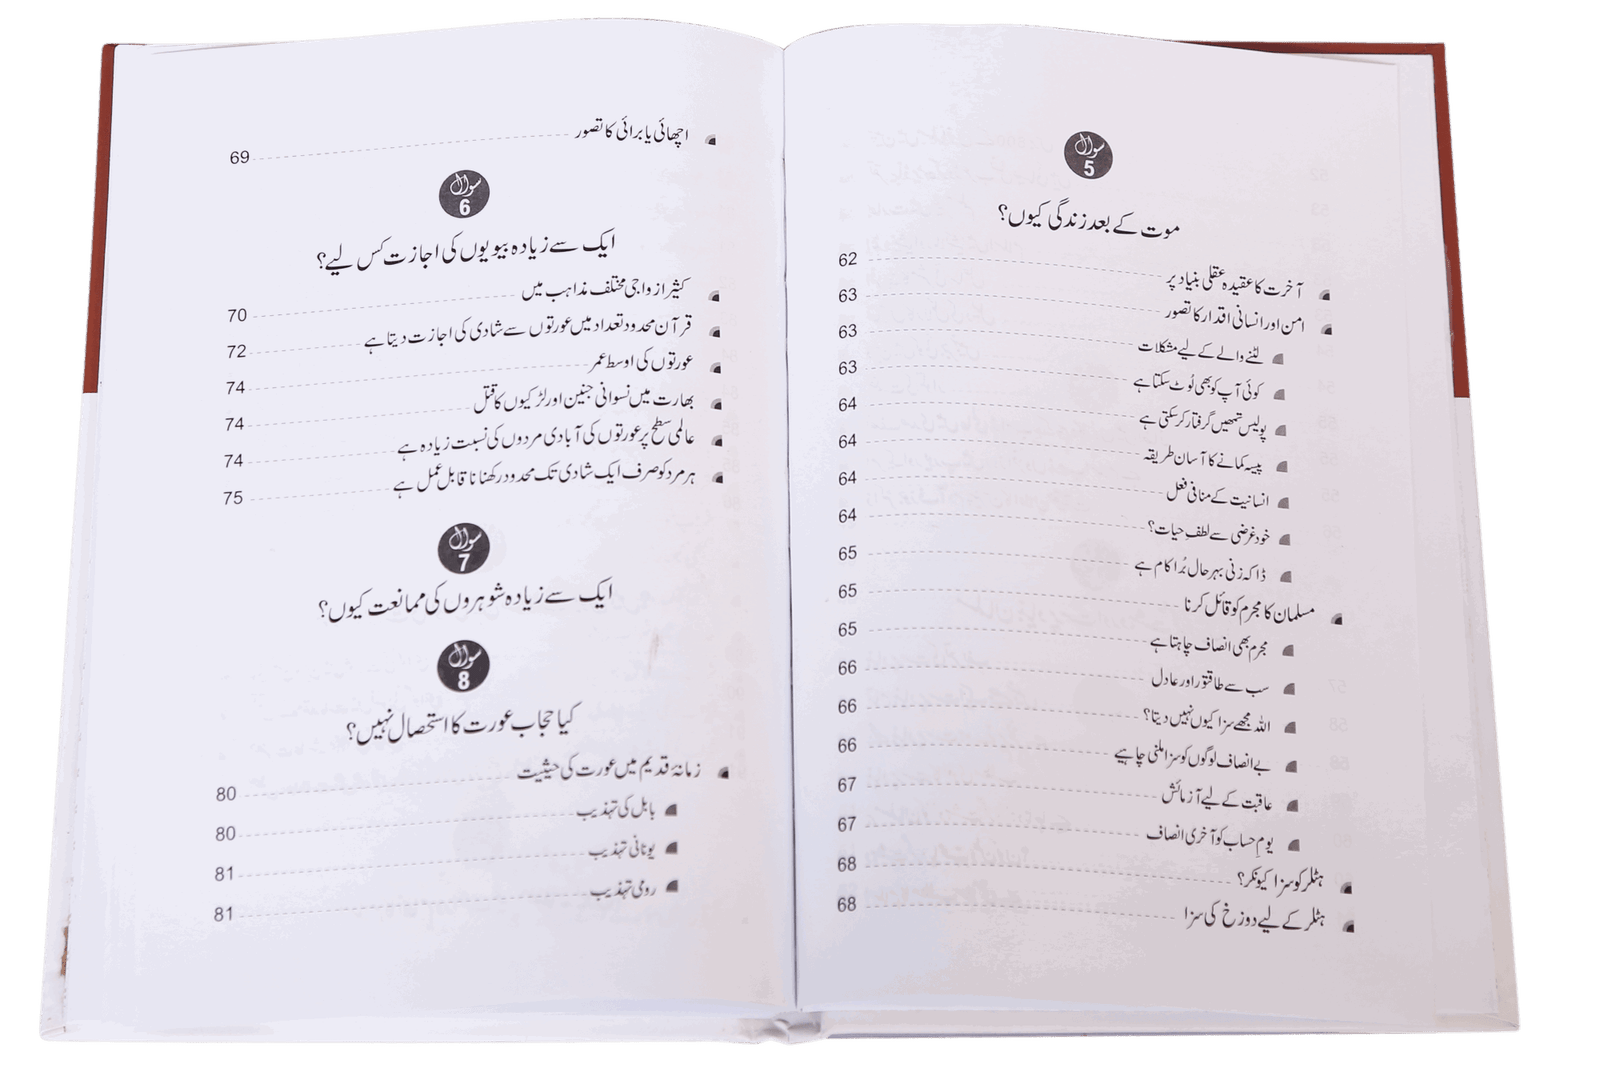 سوال
5
موت کے بعد زندگی کیوں؟
آخرت کا عقیدہ عقلی بنیاد پر 62
امن اور انسانی اقدار کا تصور 63
لٹنے والے کے لیے مشکلات 63
کوئی آپ کو بھی لُوٹ سکتا ہے 63
پولیس تمھیں گرفتار کر سکتی ہے 64
پیسہ کمانے کا آسان طریقہ 64
انسانیت کے منافی فعل 64
خود غرضی سے لطفِ حیات؟ 64
ڈاکہ زنی بہر حال بُرا کام ہے 65
مسلمان کا مجرم کو قائل کرنا 65
مجرم بھی انصاف چاہتا ہے 65
سب سے طاقتور اور عادل 66
اللہ مجھے سزا کیوں نہیں دیتا؟ 66
بے انصاف لوگوں کو سزا ملنی چاہیے 66
عاقبت کے لیے آزمائش 67
یومِ حساب کو آخری انصاف 67
ہٹلر کو سزا کیونکر؟ 68
ہٹلر کے لیے دوزخ کی سزا 68
اچھائی یا برائی کا تصور 69
سوال
6
ایک سے زیادہ بیویوں کی اجازت کس لیے؟
کثیر ازواجی مختلف مذاہب میں 70
قرآن محدود تعداد میں عورتوں سے شادی کی اجازت دیتا ہے 72
عورتوں کی اوسط عمر 74
بھارت میں نسوانی جنین اور لڑکیوں کا قتل 74
عالمی سطح پر عورتوں کی آبادی مردوں کی نسبت زیادہ ہے 74
ہر مرد کو صرف ایک شادی تک محدود رکھنا ناقابل عمل ہے 75
سوال
7
ایک سے زیادہ شوہروں کی ممانعت کیوں؟
سوال
8
کیا حجاب عورت کا استحصال نہیں؟
زمانۂ قدیم میں عورت کی حیثیت 80
بابل کی تہذیب 80
یونانی تہذیب 81
رومی تہذیب 81